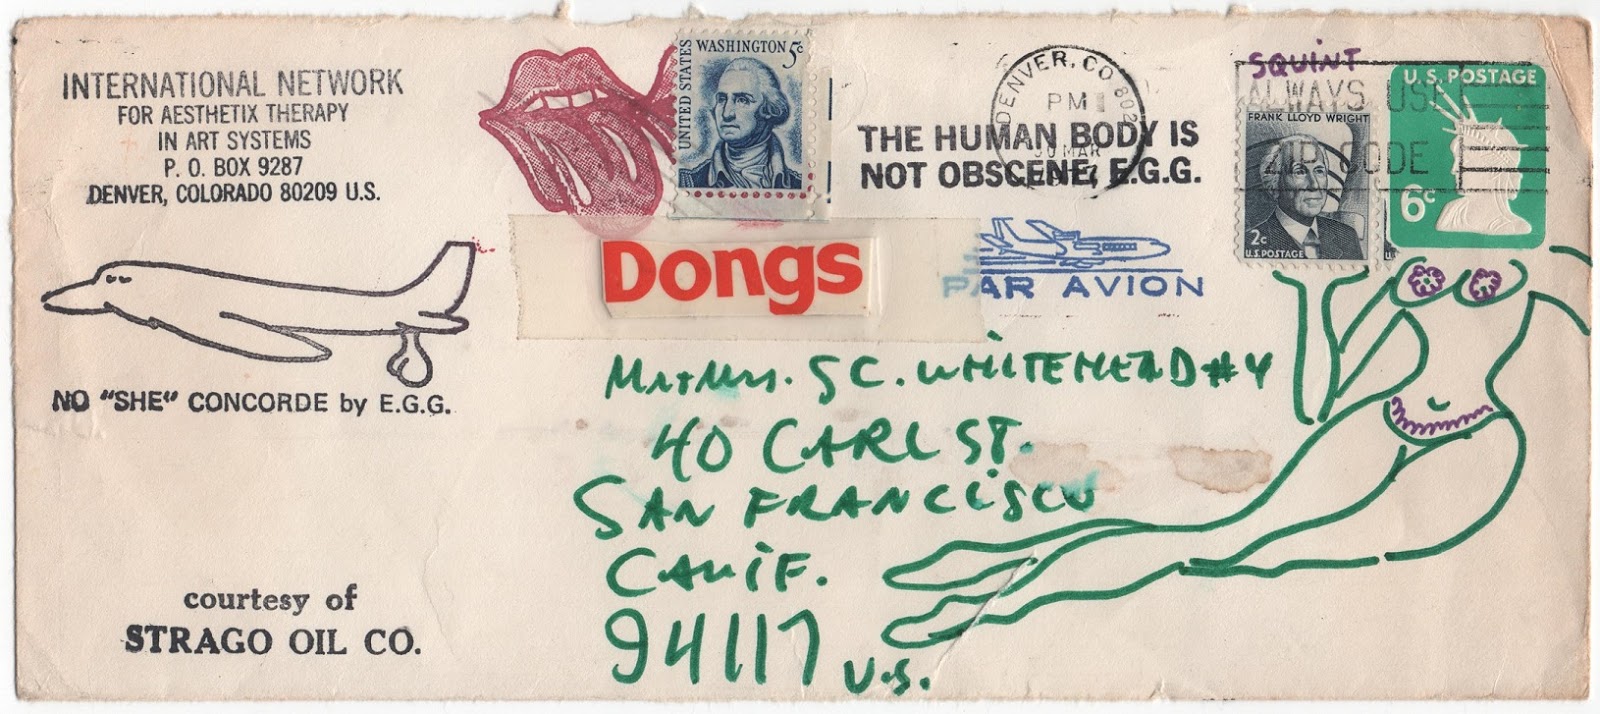 INTERNATIONAL NETWORK
FOR AESTHETIX THERAPY
IN ART SYSTEMS
P. O. BOX 9287
DENVER, COLORADO 80209 U.S.
UNITED STATES
WASHINGTON 5c
DENVER, CO 802
PM
30 MAR
THE HUMAN BODY IS
NOT OBSCENE, E.G.G.
SQUINT
ALWAYS USE
ZIP CODE
FRANK LLOYD WRIGHT
2c
U.S. POSTAGE
U.S. POSTAGE
6c
Dongs
PAR AVION
NO "SHE" CONCORDE by E.G.G.
Mr + Mrs. S C. WHITEHEAD #4
40 CARL ST.
SAN FRANCISCO
CALIF.
94117 U.S.
courtesy of
STRAGO OIL CO.